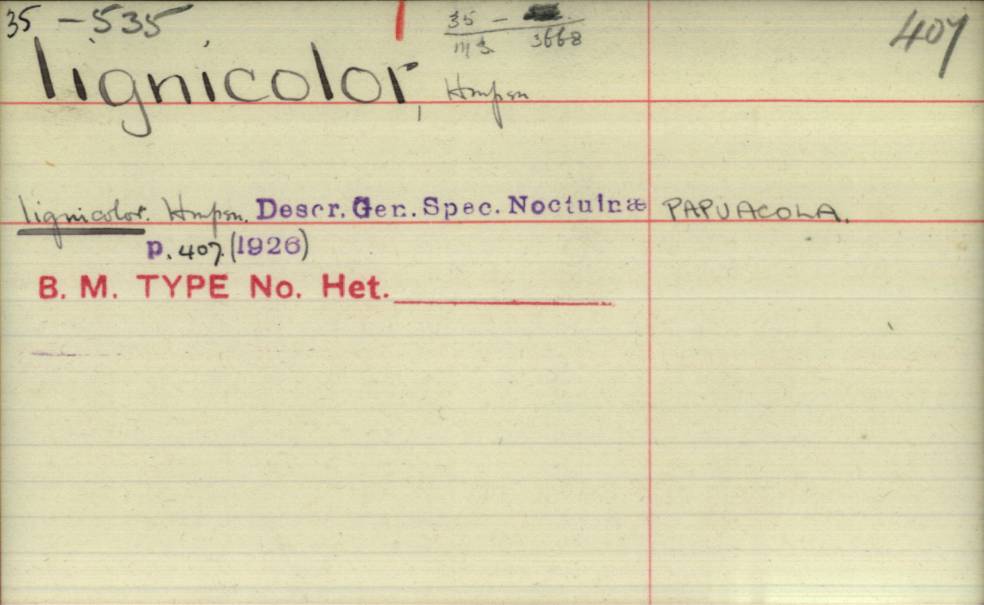 35 - 535
35 -
M S 3668
407
lignicolor, Hmpsn
lignicolor. Hmpsn. Descr. Gen. Spec. Noctuinæ PAPUACOLA.
p. 407. (1926)
B. M. TYPE No. Het.